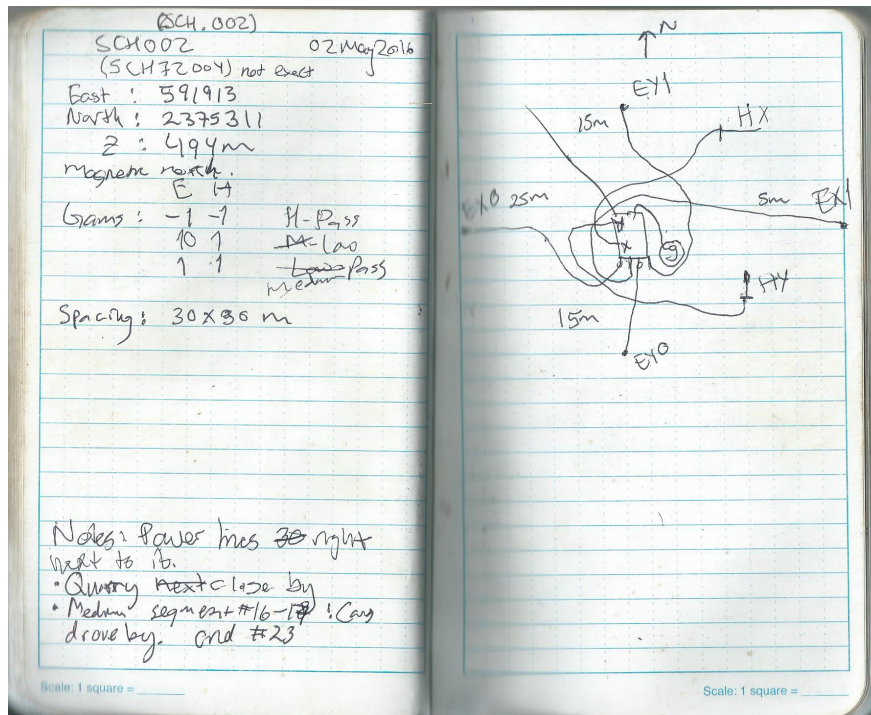 (SCH.002)
SCH002 02 May 2016
(SCH72004) not exact
East : 591913
North : 2375311
Z : 494m
magnetic north.
E H
Gains : -1 -1 H-Pass
10 1 M-Lao
1 1 Low Pass
medium
Spacing : 30 x 30 m
Notes: Power lines 30 right
next to it.
• Quarry next close by
• Medium segment #16-17 : Cars
drove by. and #23
Scale: 1 square =
N
EY1
15m
HX
EX0 25m
5m EX1
x
x
g
HY
15m
EY0
Scale: 1 square =